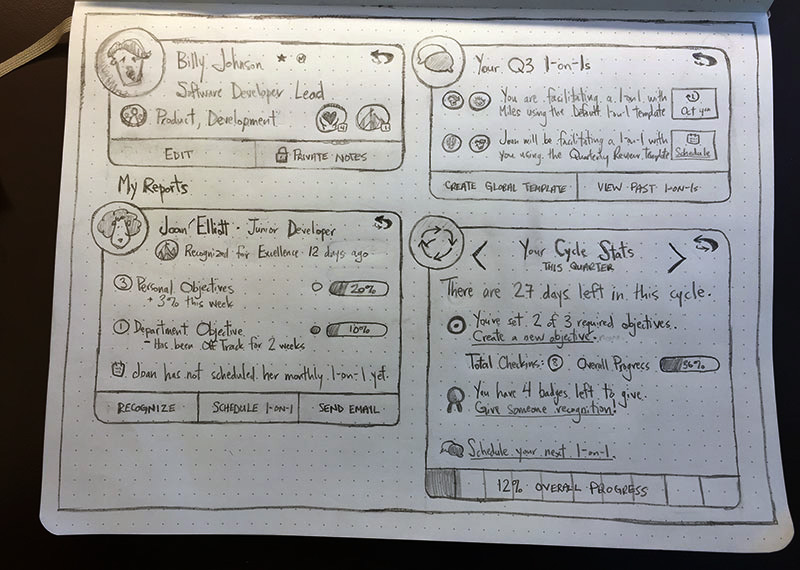 Billy Johnson
Software Developer Lead
Product, Development
EDIT
PRIVATE NOTES
My Reports
Joan Elliott · Junior Developer
Recognized for Excellence · 12 days ago
3 Personal Objectives
+ 3% this week
20%
1 Department Objective
- Has been Off Track for 2 weeks
10%
Joan has not scheduled her monthly 1-on-1 yet.
RECOGNIZE
SCHEDULE 1-ON-1
SEND EMAIL
Your Q3 1-on-1s
You are facilitating a 1-on-1 with
Miles using the Default 1-on-1 template
Oct 4th
Joan will be facilitating a 1-on-1 with
you using the Quarterly Review Template
Schedule
CREATE GLOBAL TEMPLATE
VIEW PAST 1-on-1s
< Your Cycle Stats >
THIS QUARTER
There are 27 days left in this cycle.
You've set 2 of 3 required objectives.
Create a new objective.
Total Checkins: 8 Overall Progress 36%
You have 4 badges left to give.
Give someone recognition!
Schedule your next 1-on-1.
12% OVERALL PROGRESS